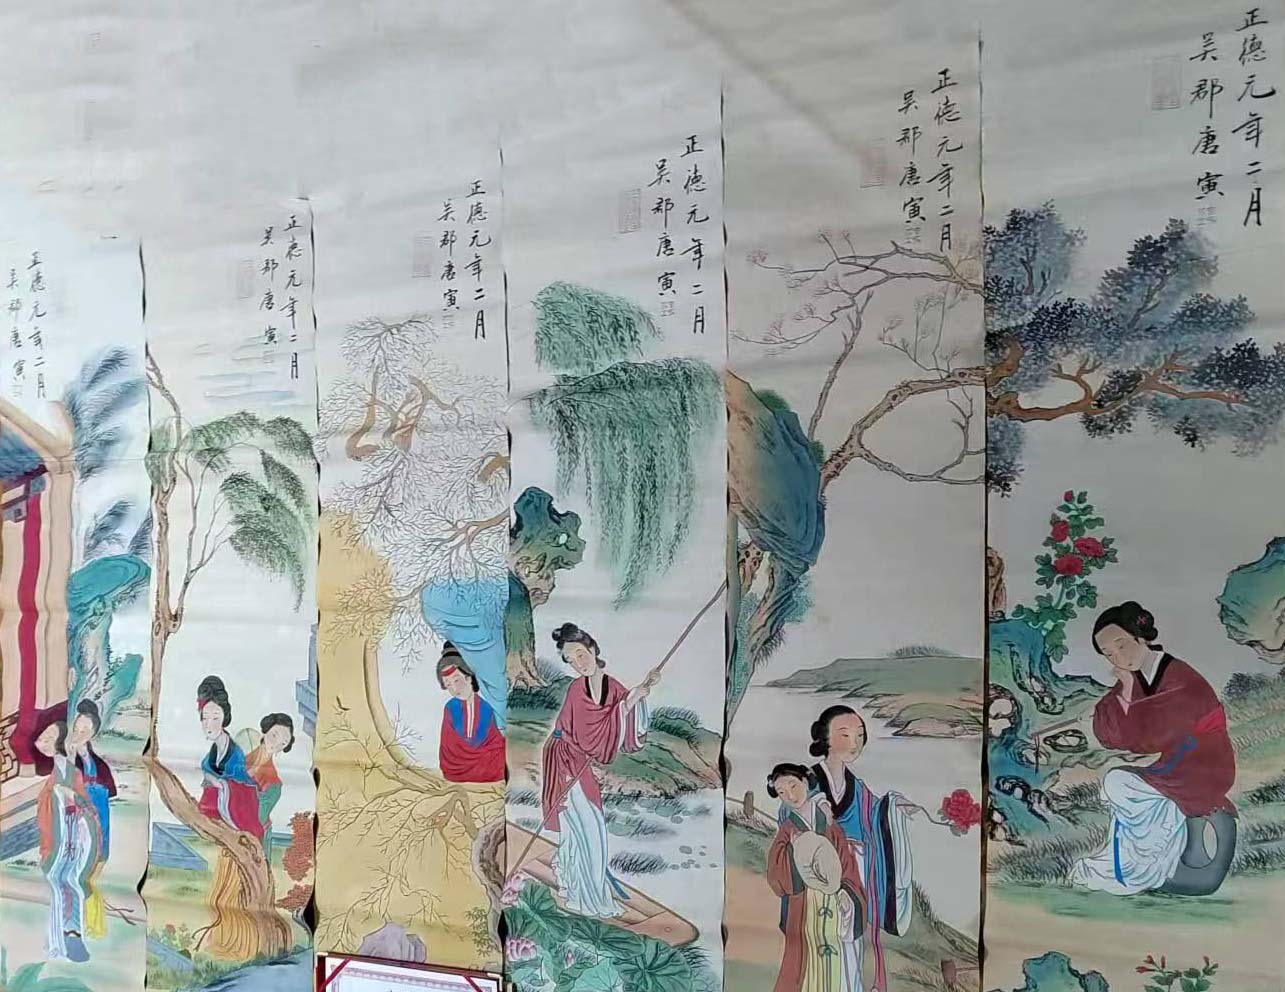 正德元年二月
吴郡唐寅
正德元年二月
吴郡唐寅
正德元年二月
吴郡唐寅
正德元年二月
吴郡唐寅
正德元年二月
吴郡唐寅
正德元年二月
吴郡唐寅